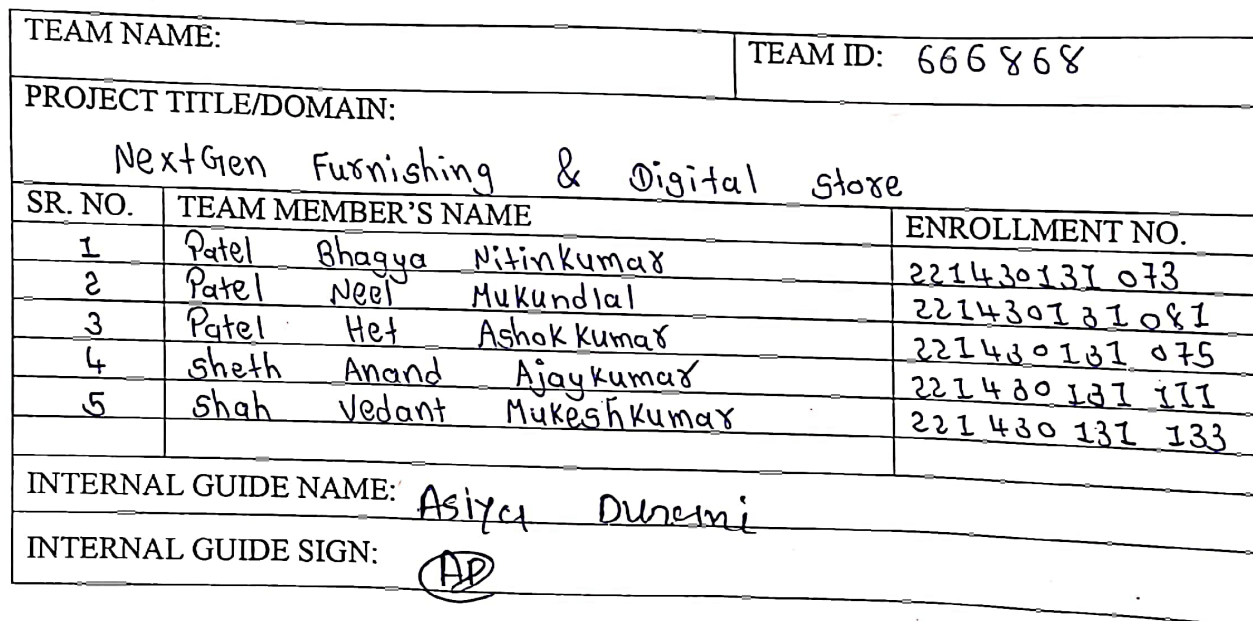 TEAM NAME: TEAM ID: 666868
PROJECT TITLE/DOMAIN:
NextGen Furnishing & Digital Store
SR. NO. TEAM MEMBER'S NAME ENROLLMENT NO.
1 Patel Bhagya Nitinkumar 221430131073
2 Patel Neel Mukundlal 221430131081
3 Patel Het Ashokkumar 221430131075
4 Sheth Anand Ajaykumar 221430131111
5 Shah Vedant Mukeshkumar 221430131133
INTERNAL GUIDE NAME: Asiya
INTERNAL GUIDE SIGN: AD